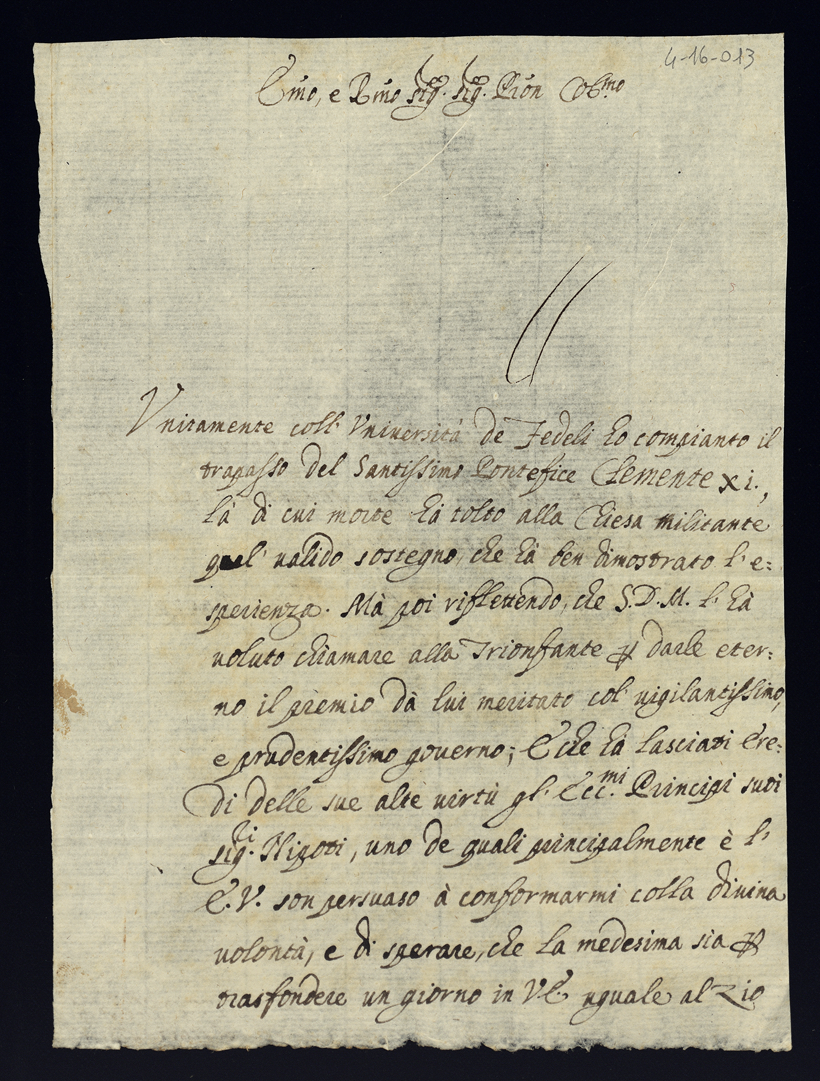 4-16-013
Emo, e Rmo Sig. Sig. Pron Colmo
Unitamente coll' Università de Fedeli hò compianto il
trapasso del Santissimo Pontefice Clemente XI.,
la di cui morte hà tolto alla Chiesa militante
quel valido sostegno, che hà ben dimostrato l'e=
sperienza. Mà poi riflettendo, che S.D.M. l'hà
voluto chiamare alla Trionfante p darle eter=
no il premio dà lui meritato col vigilantissimo,
e prudentissimo governo; E che hà lasciati Ere=
di delle sue alte virtù gl' Ecc.mi Principi suoi
Sig.ri Nipoti, uno de quali principalmente è l'
E.V. son persuaso à conformarmi colla divina
volontà, e di sperare, che la medesima sia p
trasfondere un giorno in V.E. uguale al Zio